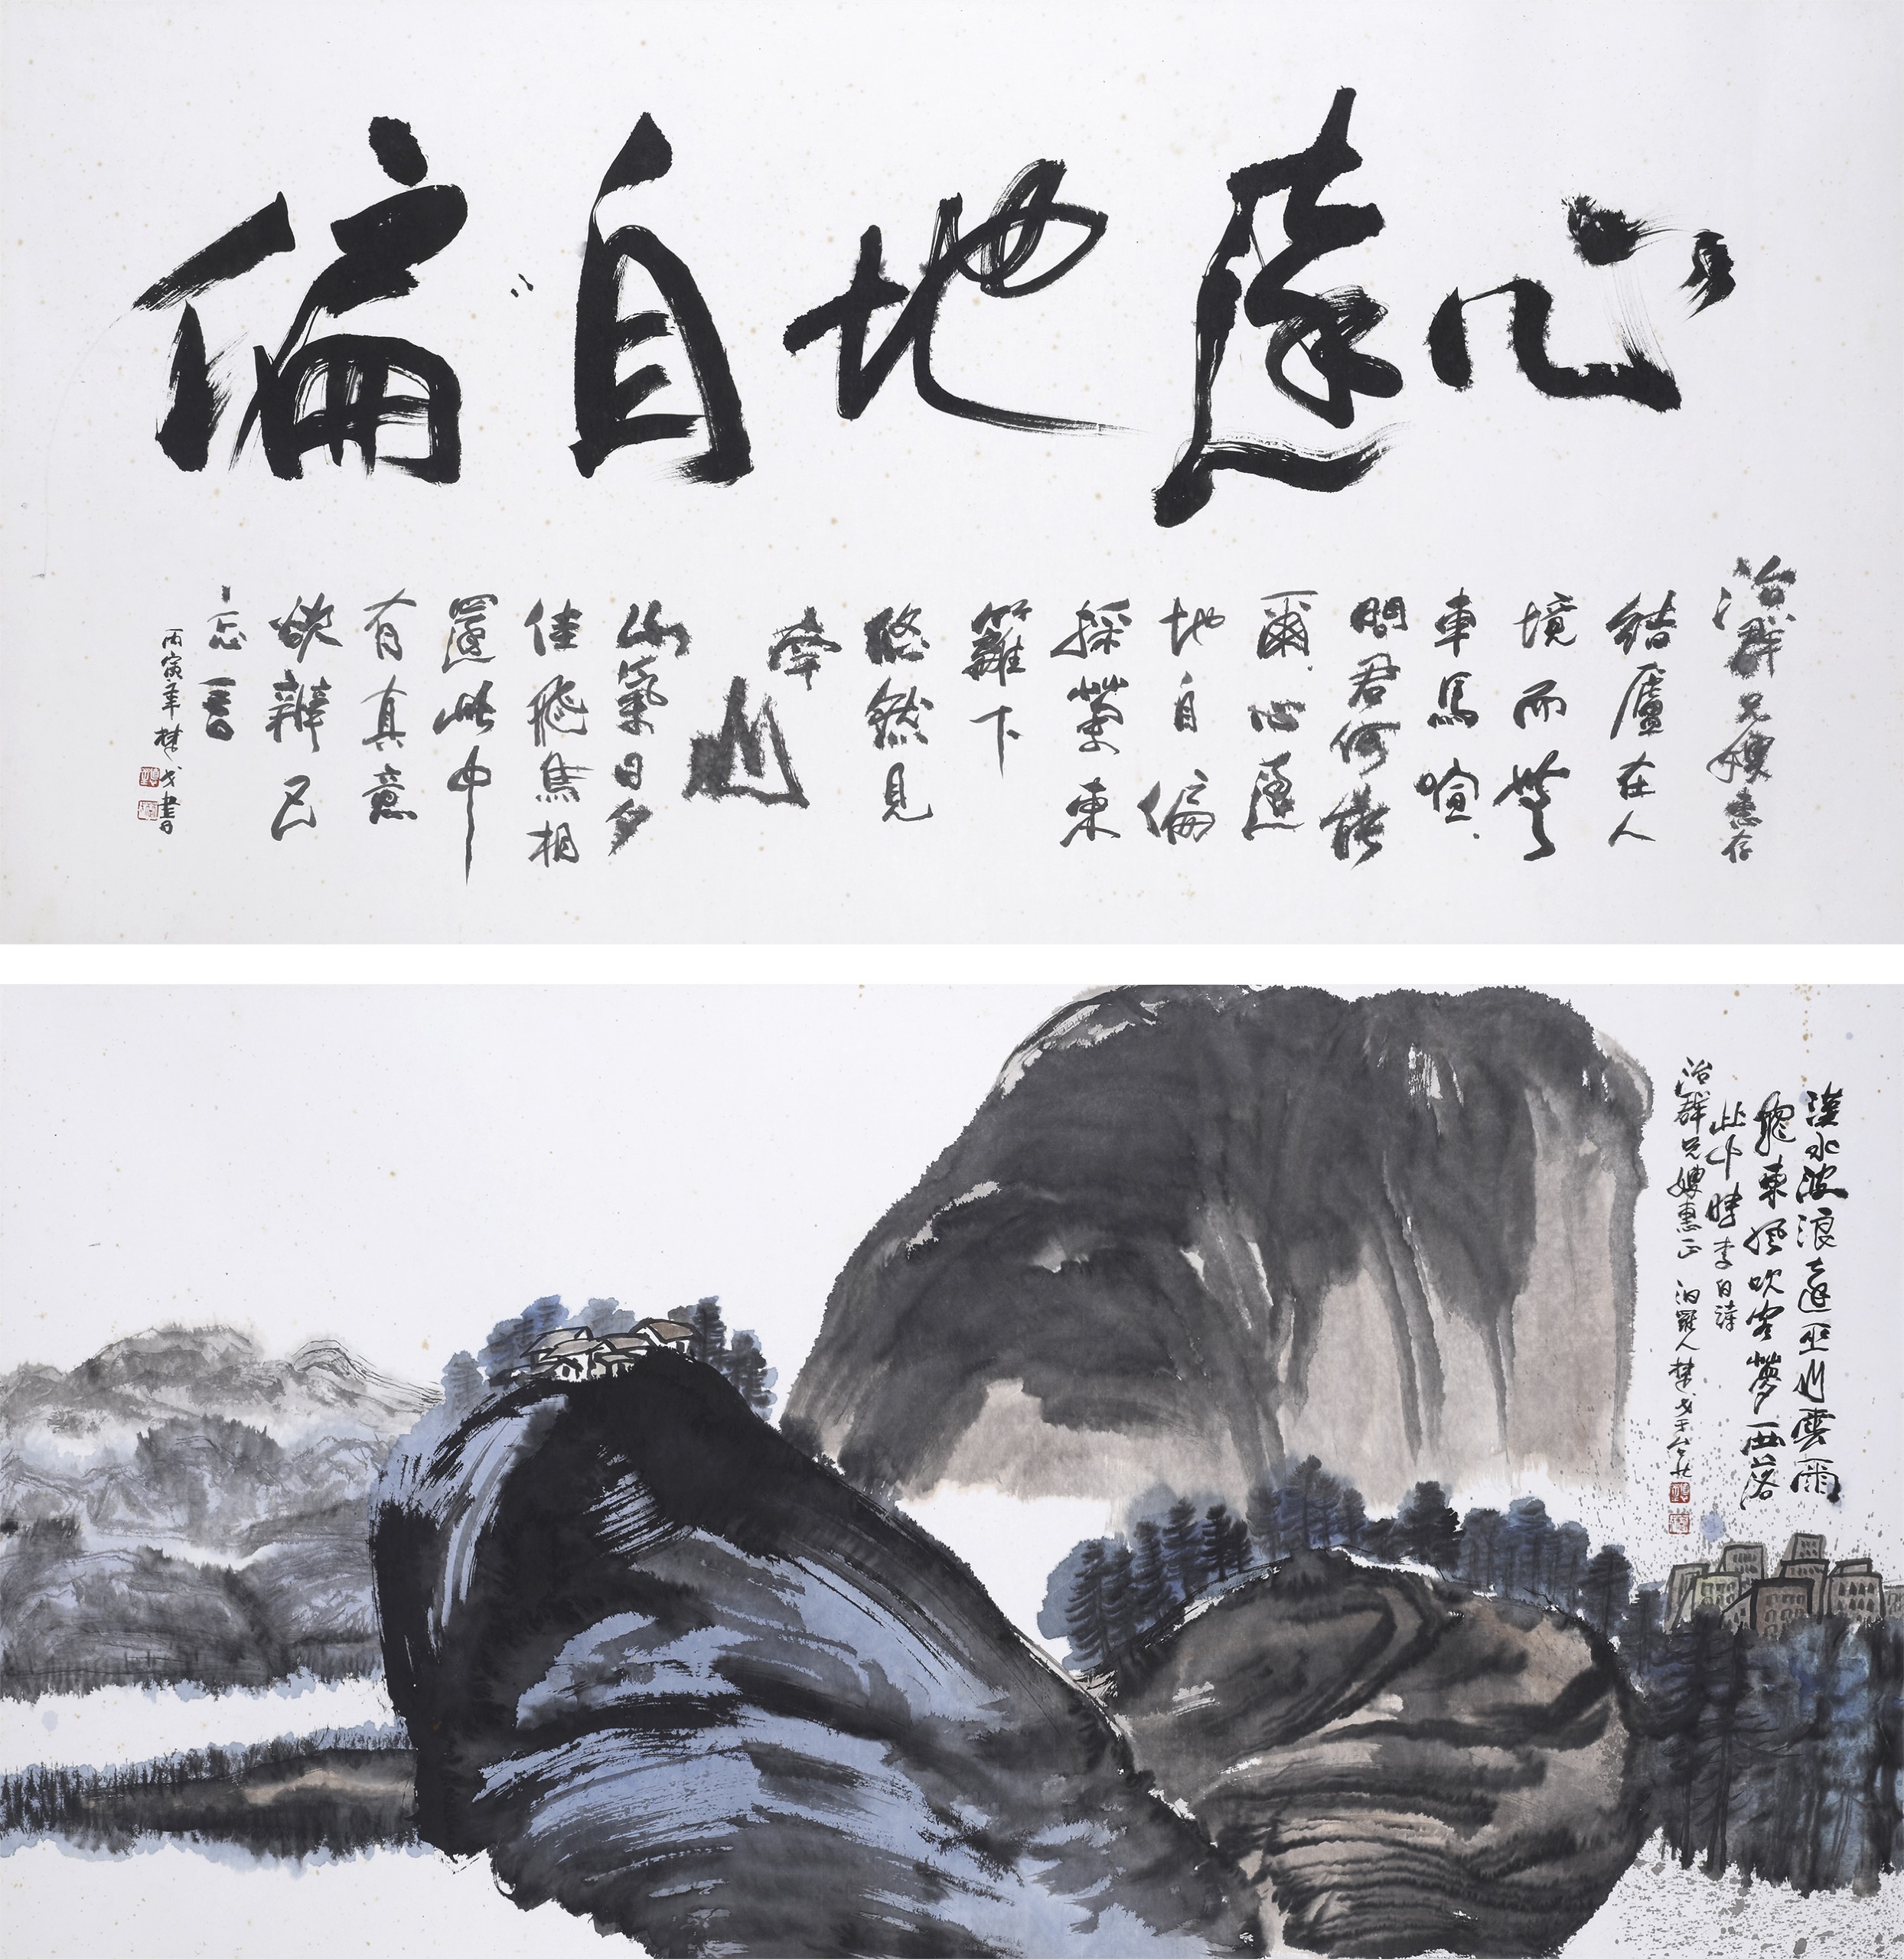 心遠地自偏
治群兄嫂惠存
結廬在人
境而無
車馬喧
問君何能
爾心遠
地自偏
採菊東
籬下
悠然見
南
山
山氣日夕
佳飛鳥相
還此中
有真意
欲辯已
忘言
丙寅年楚戈書
漢水波浪遠巫山雲雨
飛東風吹客夢西落
此中時李白詩
治群兄嫂惠正 汨羅人楚戈于台北